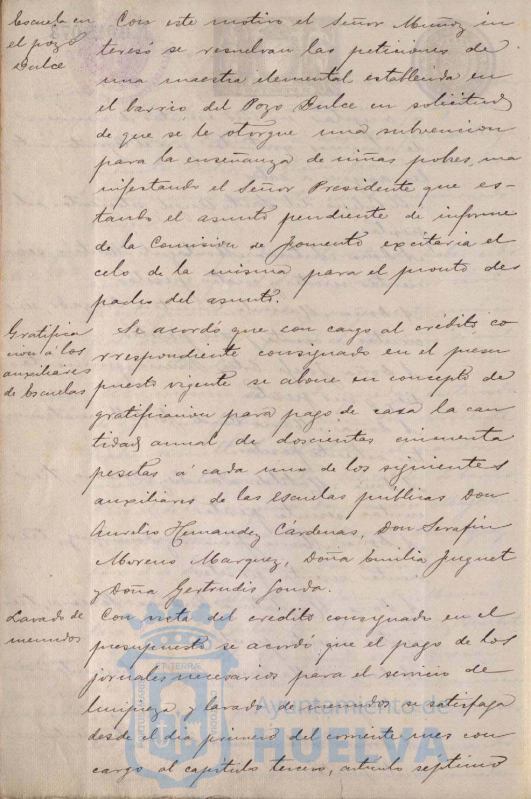 Escuela en
el pozo
Dulce
Con este motivo el Señor Muñoz in
teresó se resuelvan las peticiones de
una maestra elemental establecida en
el barrio del Pozo Dulce en solicitud
de que se le otorgue una subvencion
para la enseñanza de niñas pobres, ma
nifestando el Señor Presidente que es-
tando el asunto pendiente de informe
de la Comision de Fomento excitaria el
celo de la misma para el pronto des
pacho del asunto.
Gratifica
cion á los
auxiliares
de Escuelas
Se acordó que con cargo al crédito co
rrespondiente consignado en el presu
puesto vigente se abone en concepto de
gratificacion para pago de casa la can
tidad anual de doscientas cincuenta
pesetas á cada uno de los siguientes
auxiliares de las escuelas públicas Don
Aurelio Hernandez Cárdenas, Don Serafin
Moreno Marquez, Doña Emilia Juguet
y Doña Gertrudis
Lavado de
menudos
Con vista del crédito consignado en el
presupuesto se acordó que el pago de los
jornales necesarios para el servicio de
limpieza y lavado de menudos se satisfaga
desde el dia primero del corriente mes con
cargo al capitulo tercero, articulo septimo
Ayuntamiento de
HUELVA